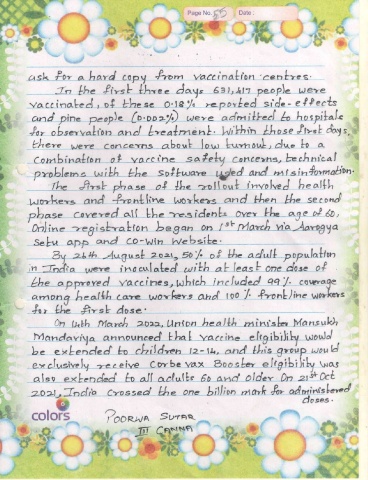 Page No. 85 Date:
ask for a hard copy from vaccination centres.
In the first three days 631,417 people were
vaccinated, of these 0.18% reported side-effects
and pine people (0.002%) were admitted to hospitals
for observation and treatment. Within those first days,
there were concerns about low turnout, due to a
combination of vaccine safety concerns, technical
problems with the software used and misinformation.
The first phase of the rollout involved health
workers and frontline workers and then the second
phase covered all the residents over the age of 60,
Online registration began on 1st March via Aarogya
Setu app and CO-WIN website.
By 24th August 2021, 50% of the adult population
in India were inoculated with at least one dose of
the approved vaccines, which included 99% coverage
among health care workers and 100% frontline workers
for the first dose.
On 14th March 2022, Union health minister Mansukh
Mandaviya announced that vaccine eligibility would
be extended to children 12-14, and this group would
exclusively receive Corbevax Booster eligibility was
also extended to all adults 60 and older On 21st Oct
2021, India crossed the one billion mark for administered
doses.
colors
POORWA SUTAR
III